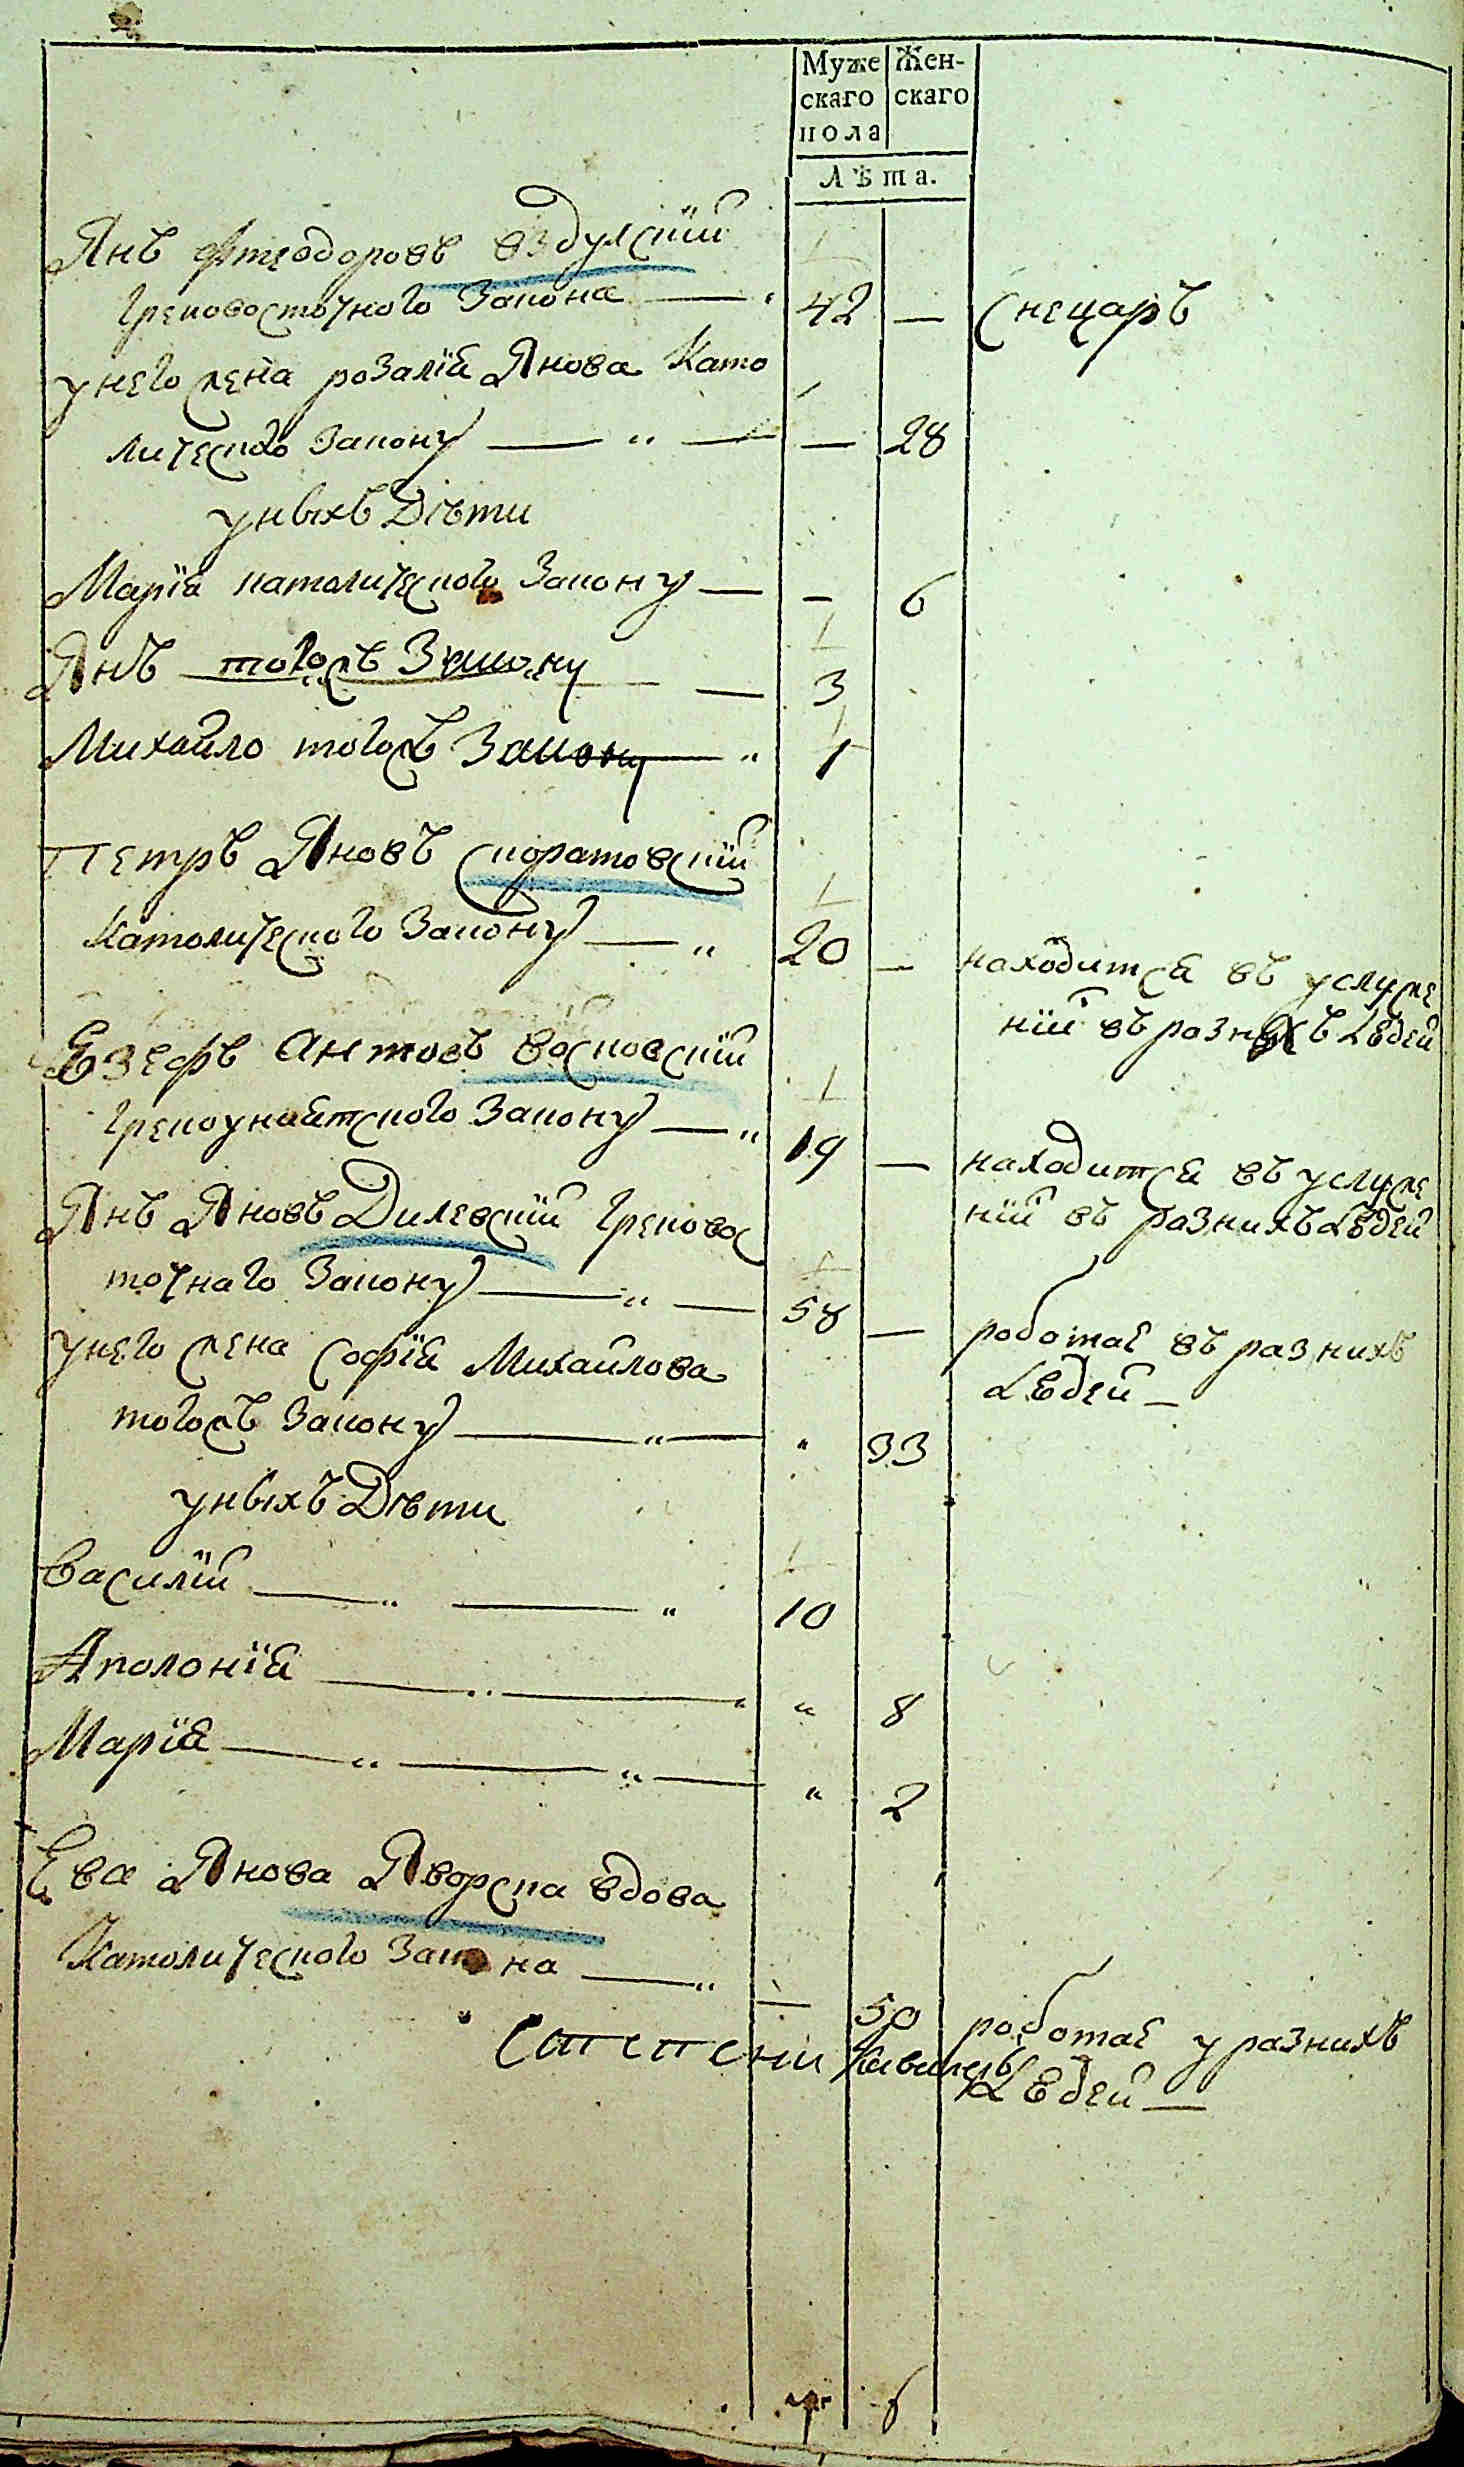 Муже Жен-
скаго скаго
пола
Лѣта.
Янъ Фтеодоровъ вздулскій
Грековосточного Закона 42 — Снецаръ
унего жена розалія Янова Като
лическо Закону — 28
уныхъ Дѣти
Марія католического Закону — 6
Янъ тогожъ Закону — 3
Михайло тогожъ Закону 1
Петръ Яновъ скоратовскій
Католического Закону 20 — находится въ услуже
ній въ розныхъ Людей
Езефъ Антовъ восковскій
Грекоунаитского Закону 19 — находится въ услуже
ній въ разнихъ Людей
Янъ Яновъ Дилевскій Грековос
точнаго Закону 58 — роботае въ разнихъ
Людей —
унего жена Софія Михаилова
тогожъ Закону 33
уныхъ Дѣти
Василій 10
Аполонія 8
Марія 2
Ева Янова Яворска вдова
Католического Закона — 50 роботае у разнихъ
Людей —